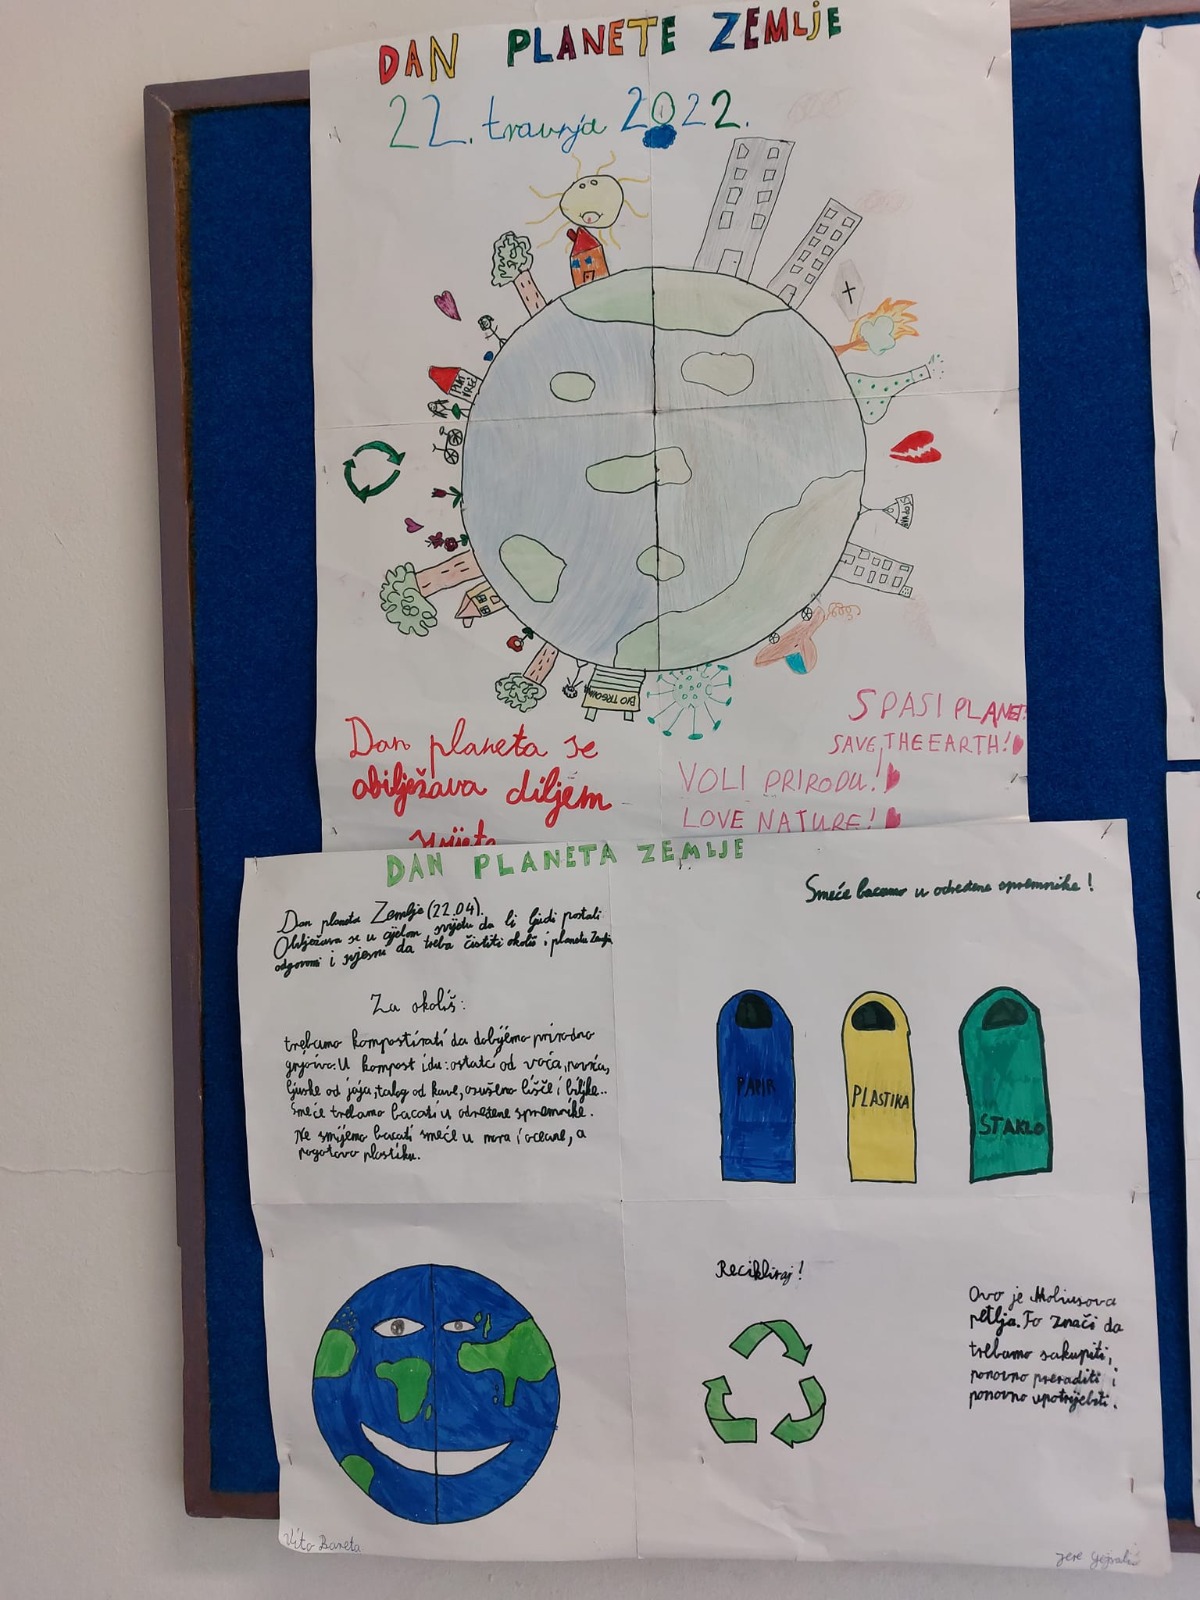 DAN PLANETE ZEMLJE
22. travnja 2022.
BIO TRGOVINA
Dan planeta se
obilježava diljem
svijeta
SPASI PLANET!
SAVE THE EARTH!
VOLI PRIRODU!
LOVE NATURE!
DAN PLANETA ZEMLJE
Dan planeta Zemlje (22.04).
Obilježava se u cijelom svijetu da bi ljudi postali
odgovorni i svjesni da treba čistiti okoliš i planetu Zemlju
Za okoliš:
trebamo kompostirati da dobijemo prirodno
gnjojivo. U kompost idu: ostatci od voća, povrća,
ljuske od jaja, talog od kave, osušeno lišće i biljke..
Smeće trebamo bacati u određene spremnike.
Ne smijemo bacati smeće u mora i oceane, a
pogotovo plastiku.
Smeće bacamo u određene spremnike!
PAPIR
PLASTIKA
STAKLO
Recikliraj!
Ovo je Mobiusova
petlja. To znači da
trebamo sakupiti,
ponovno preraditi i
ponovno upotrijebiti.
Vito Bareta
Jere